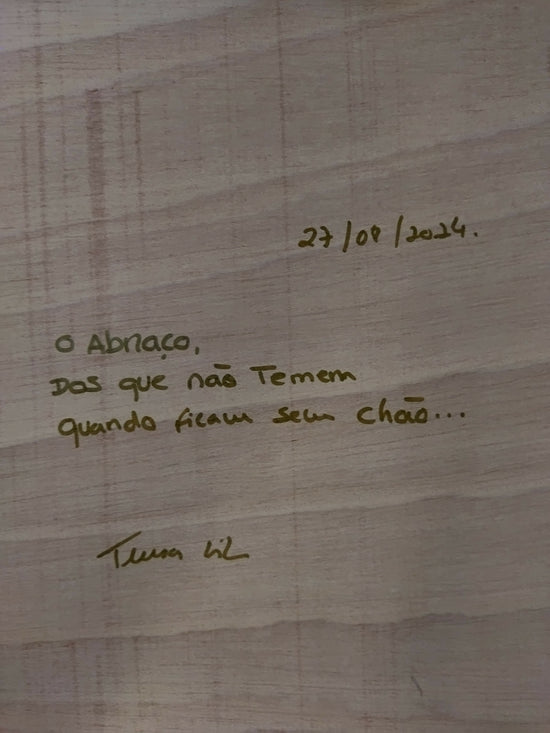 27/08/2024.
O Abraço,
Dos que não Temem
quando ficam sem chão...